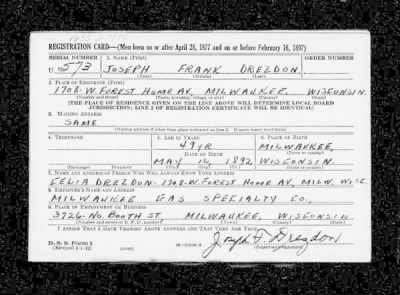 REGISTRATION CARD—(Men born on or after April 28, 1877 and on or before February 16, 1897)
SERIAL NUMBER 1. NAME (Print) ORDER NUMBER
U 573 JOSEPH FRANK DREZDON.
(First) (Middle) (Last)
2. PLACE OF RESIDENCE (Print)
1708-W. FOREST HOME AV. MILWAUKEE, WISCONSIN.
(Number and street) (Town, township, village, or city) (County) (State)
[THE PLACE OF RESIDENCE GIVEN ON THE LINE ABOVE WILL DETERMINE LOCAL BOARD
JURISDICTION; LINE 2 OF REGISTRATION CERTIFICATE WILL BE IDENTICAL]
3. MAILING ADDRESS
SAME
[Mailing address if other than place indicated on line 2. If same insert word same]
4. TELEPHONE 5. AGE IN YEARS 6. PLACE OF BIRTH
49 YR. MILWAUKEE,
DATE OF BIRTH (Town or county)
MAY 12, 1892 WISCONSIN.
(Exchange) (Number) (Mo.) (Day) (Yr.) (State or country)
7. NAME AND ADDRESS OF PERSON WHO WILL ALWAYS KNOW YOUR ADDRESS
CELIA DREZDON. 1708-W. FOREST HOME AV., MILW. WISC.
8. EMPLOYER'S NAME AND ADDRESS
MILWAUKEE GAS SPECIALTY CO.
9. PLACE OF EMPLOYMENT OR BUSINESS
3726-NO. BOOTH ST. MILWAUKEE, WISCONSIN.
(Number and street or R. F. D. number) (Town) (County) (State)
I AFFIRM THAT I HAVE VERIFIED ABOVE ANSWERS AND THAT THEY ARE TRUE.
D. S. S. Form 1
(Revised 4-1-42) (over) Joseph F. Drezdon
(Registrant's signature)